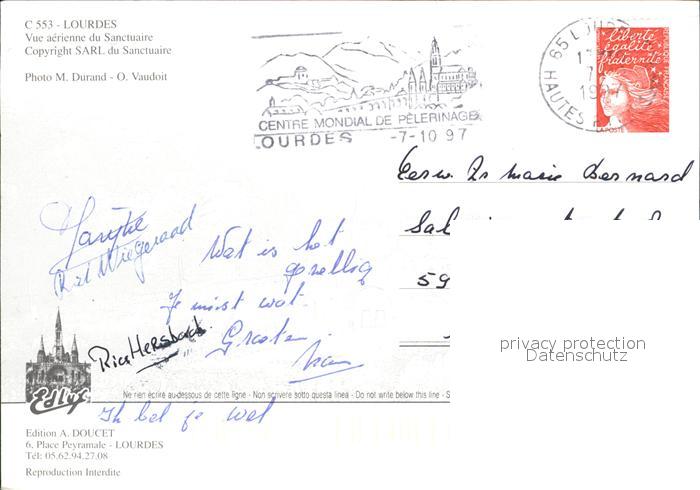 C 553 - LOURDES
Vue aérienne du Sanctuaire
Copyright SARL du Sanctuaire
Photo M. Durand - O. Vaudoit
CENTRE MONDIAL DE PÈLERINAGE
LOURDES -7-10 97
65 LOURDES
7
HAUTES
liberté
égalité
fraternité
RÉPUBLIQUE FRANÇAISE
LA POSTE
Eerw. Zr Marie Bernard
Sal
59
Marijke
Wiegeraad
Wat is het
gezellig
Je mist wat.
Groeten
Rica Hersbach
Ik bel je wel
Edlys
Ne rien écrire au-dessous de cette ligne - Non scrivere sotto questa linea - Do not write below this line - S
Edition A. DOUCET
6, Place Peyramale - LOURDES
Tél: 05.62.94.27.08
Reproduction Interdite
privacy protection
Datenschutz